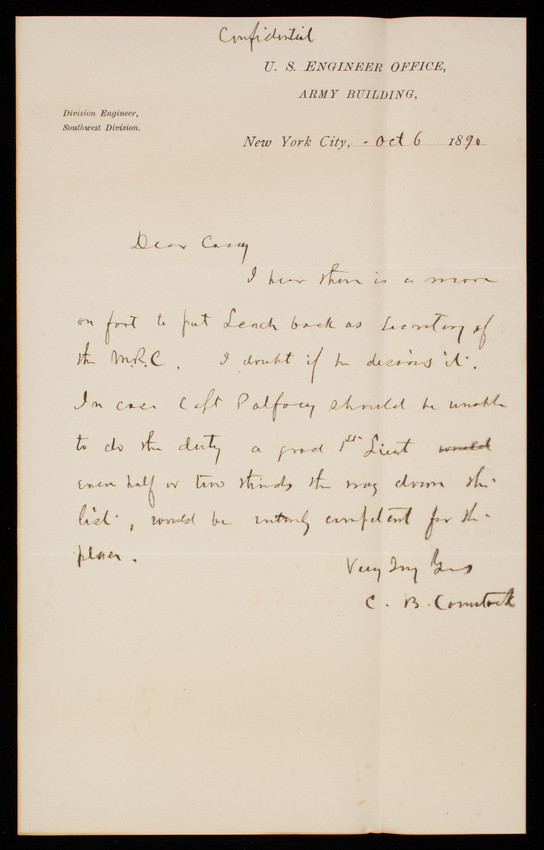 Confidential
U. S. ENGINEER OFFICE,
ARMY BUILDING,
Division Engineer,
Southwest Division.
New York City, - Oct 6 1890
Dear Casey
I hear there is a move
on foot to put Leach back as Secretary of
the M.R.C. I doubt if he desires it.
In case Capt Palfrey should be unable
to do the duty a good 1st Lieut would
even half or two thirds the way down the
list, would be entirely competent for the
place.
Very Truly Yours
C. B. Comstock